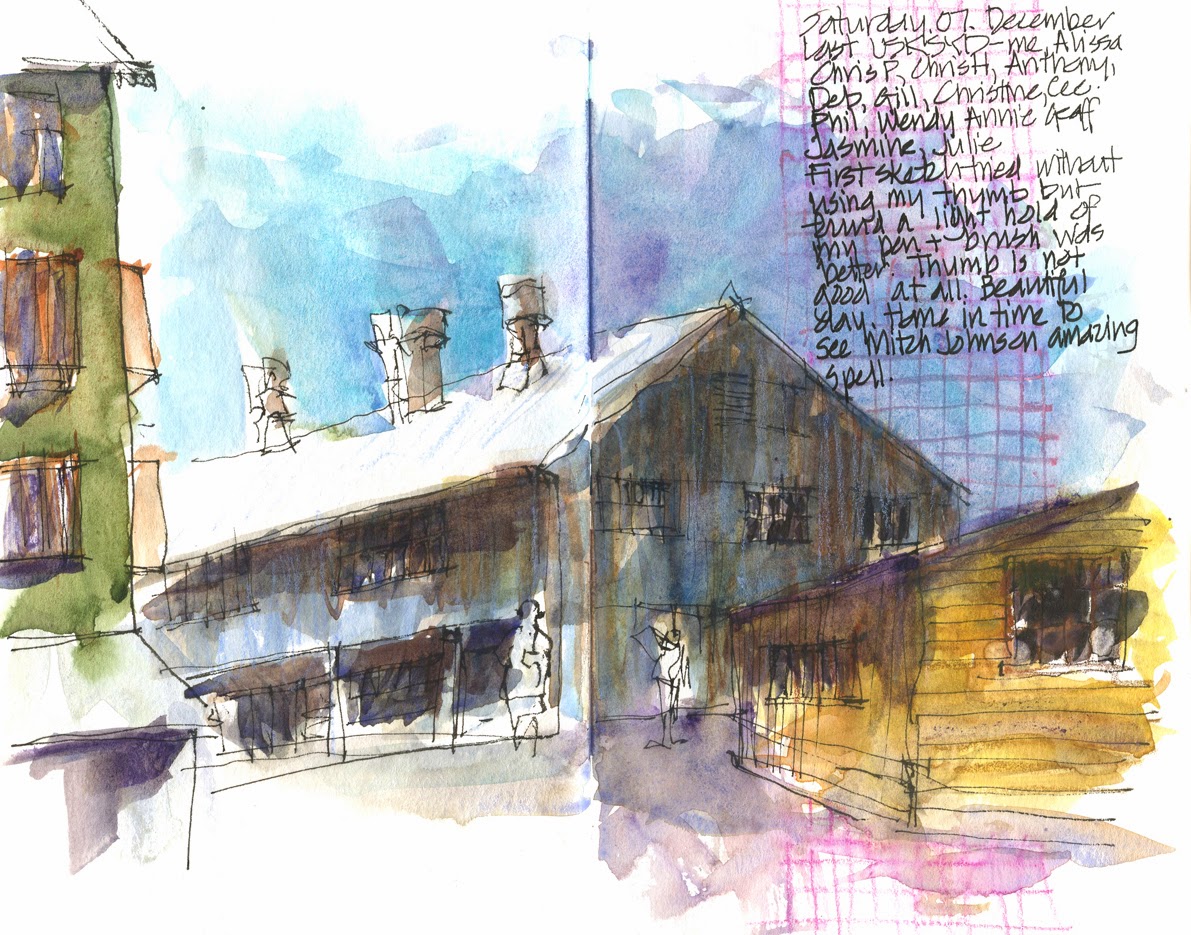 Saturday. 07. December
Last USKSYD - me, Alissa
Chris P, Chris H, Anthony,
Deb, Gill, Christine, Cec.
Phil, Wendy Annie Geoff
Jasmine, Julie
First sketch tried without
using my thumb but
found a light hold of
my pen + brush was
better. Thumb is not
good at all. Beautiful
day. Home in time to
see Mitch Johnson amazing
spell.